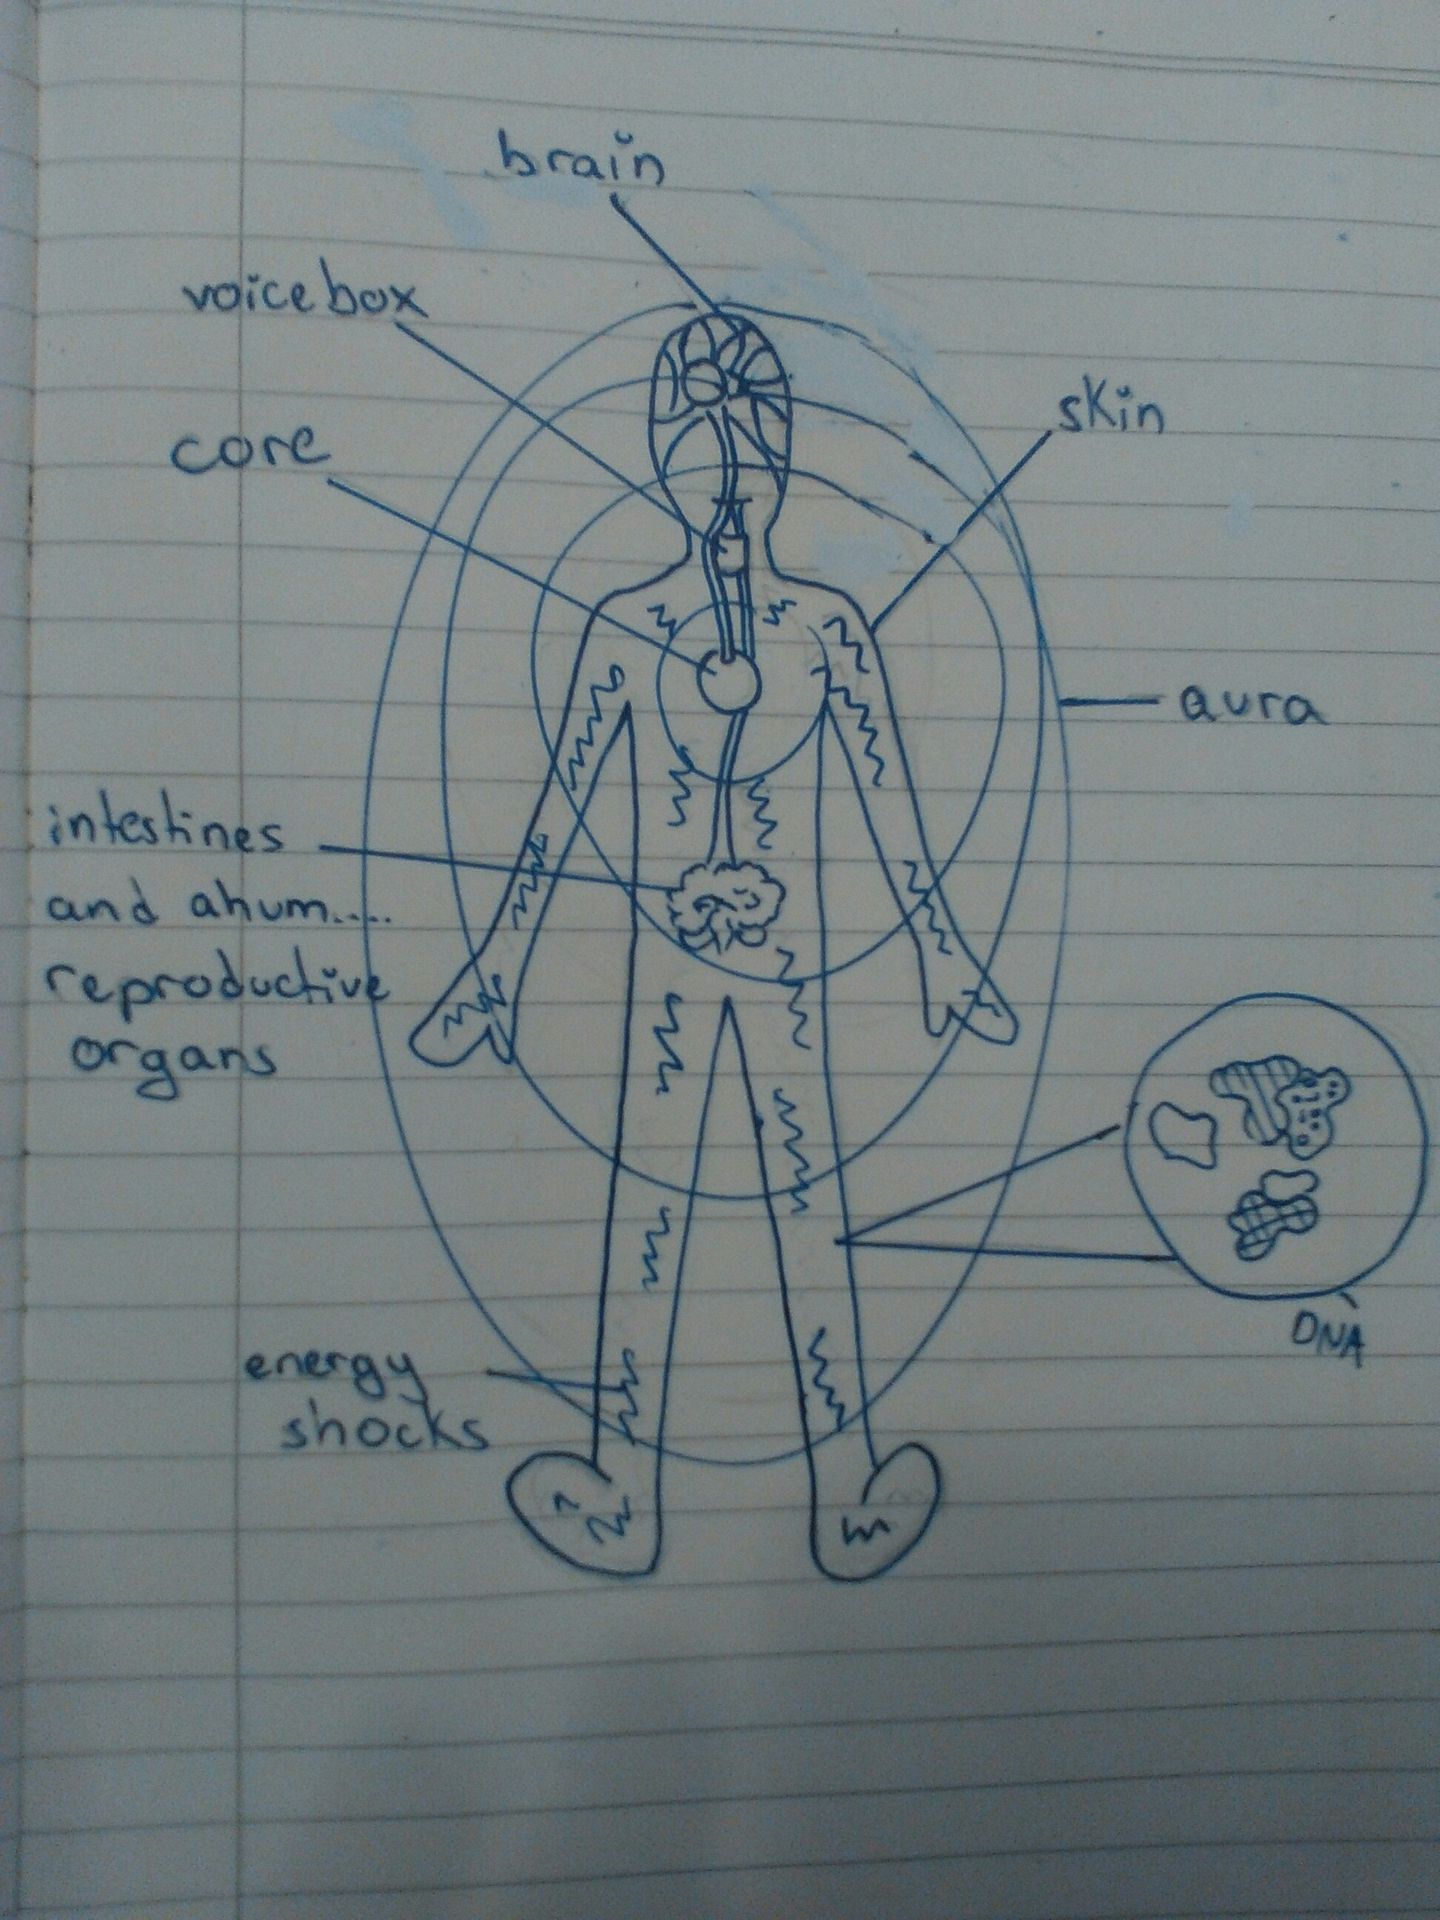 brain
voice box
core
skin
aura
intestines
and ahum....
reproductive
organs
DNA
energy
shocks